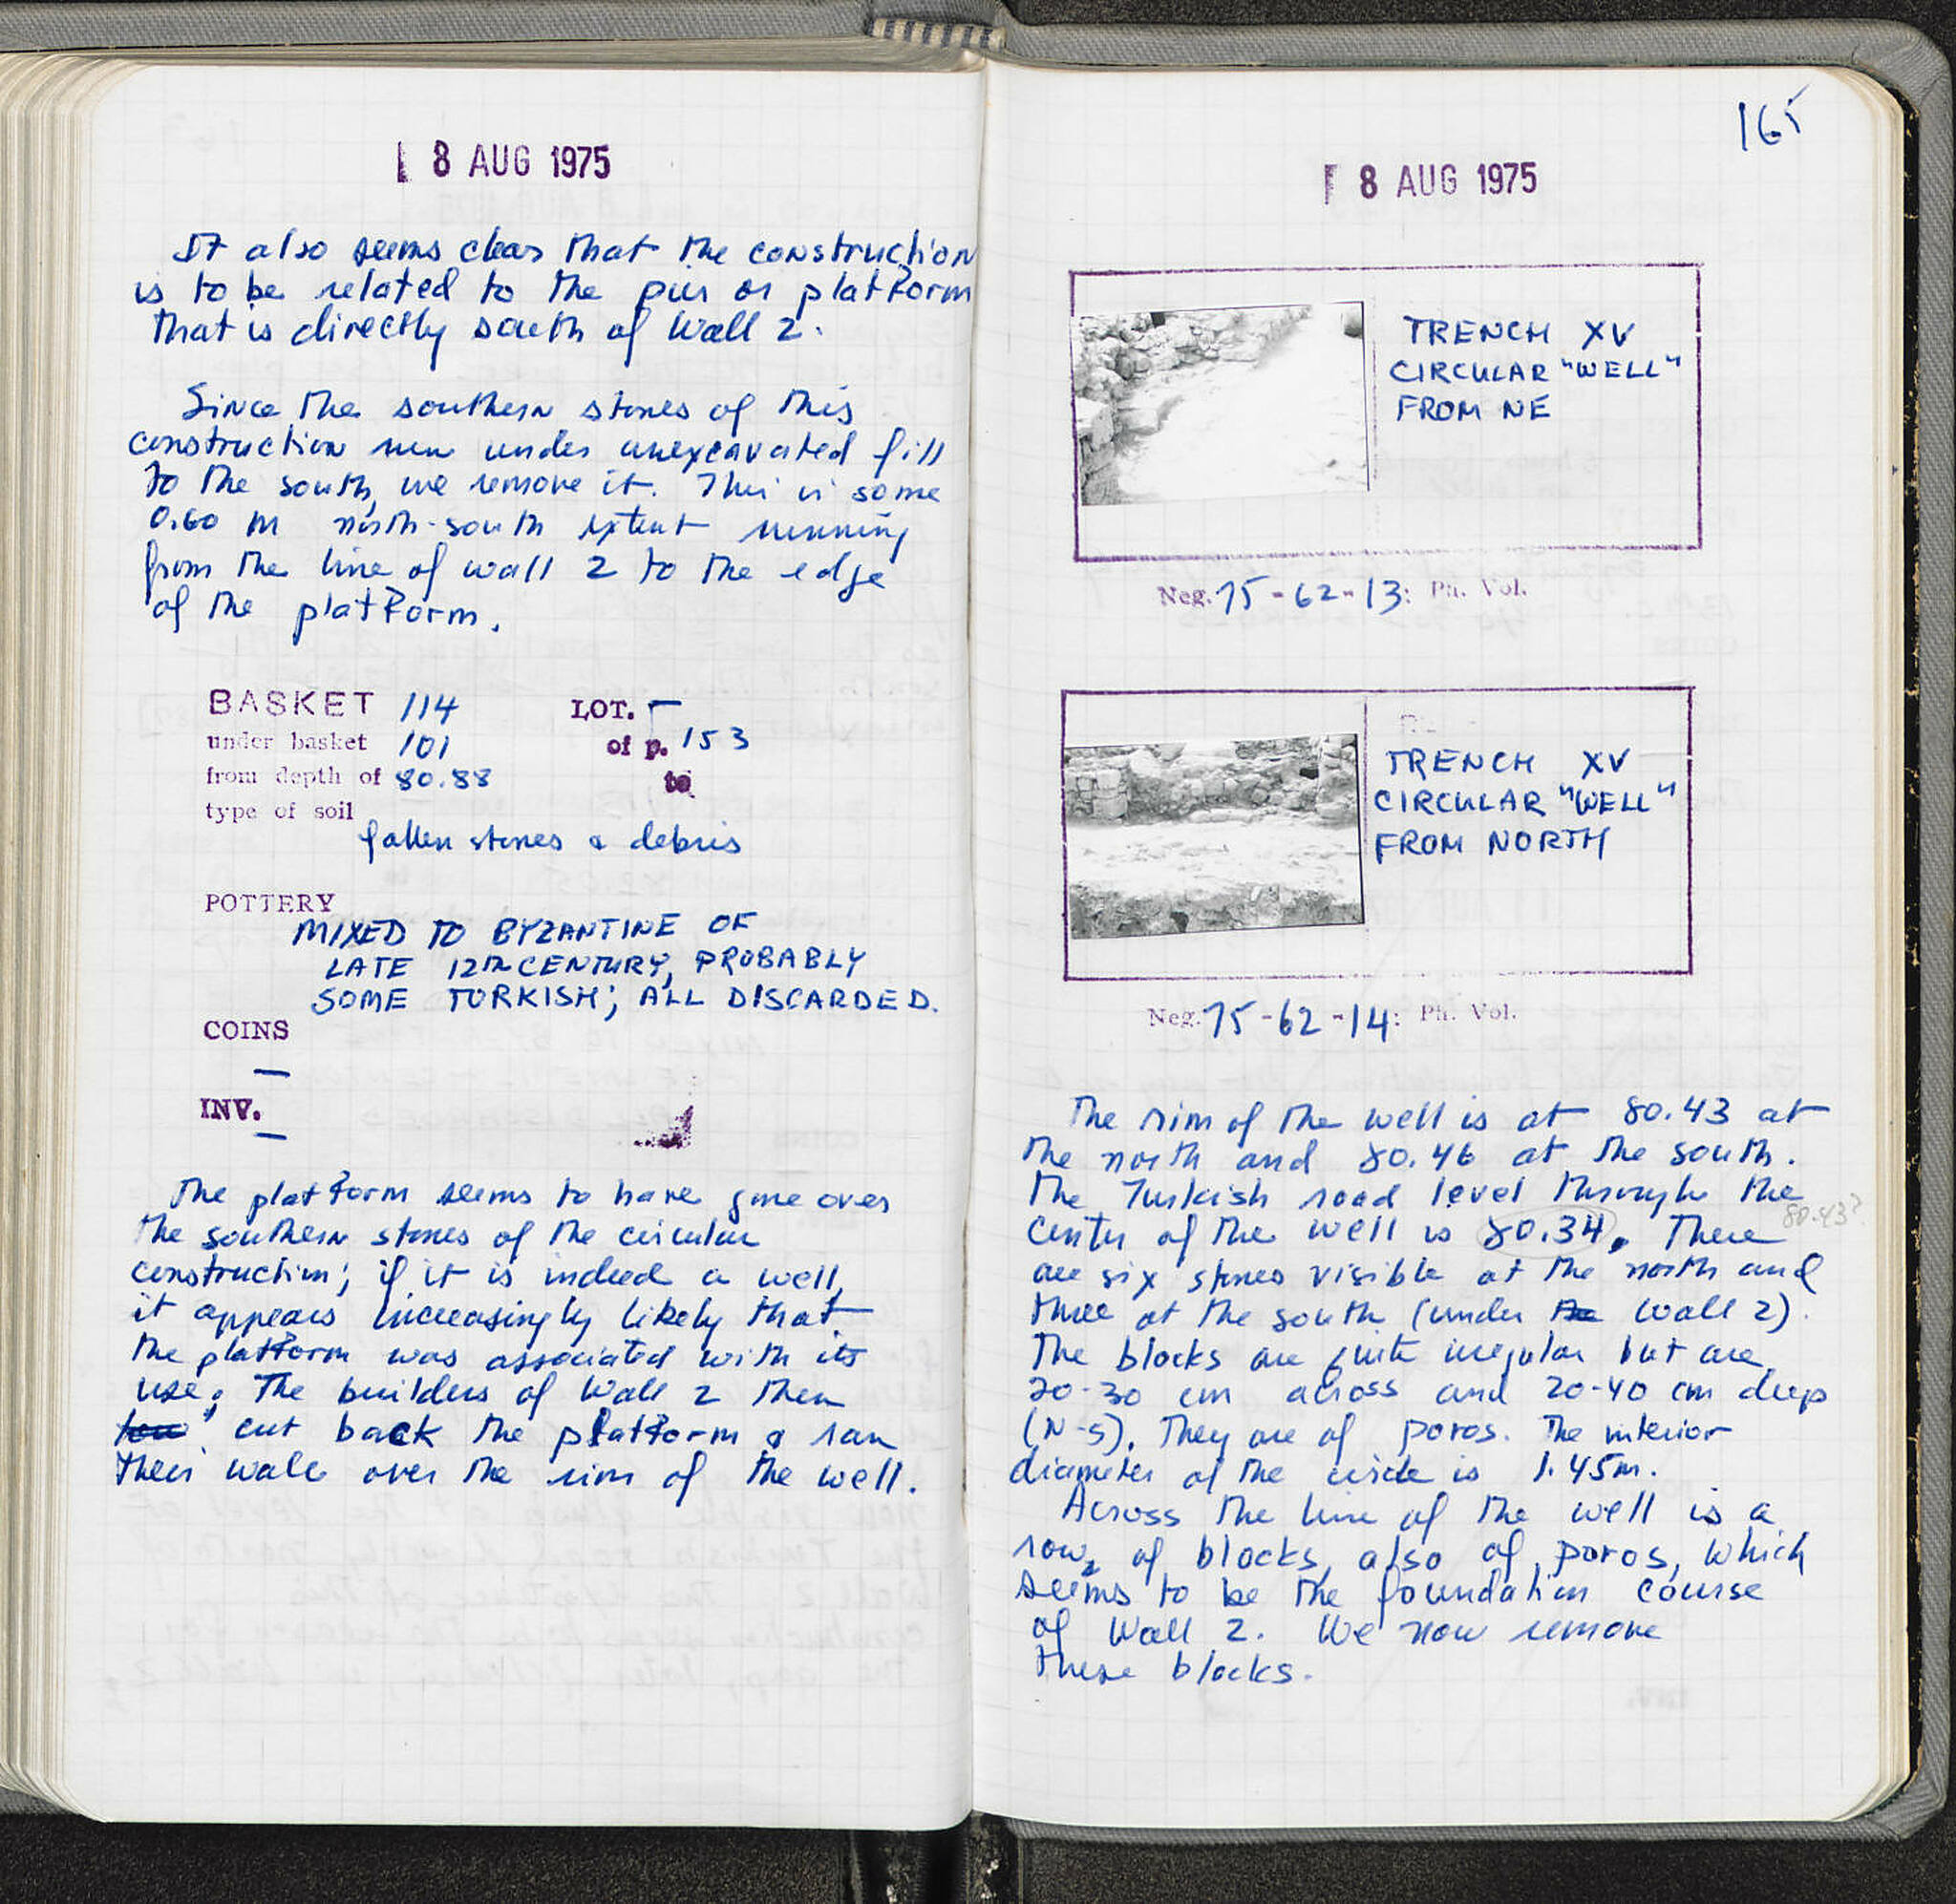 8 AUG 1975
It also seems clear that the construction
is to be related to the pier or platform
that is directly south of Wall 2.
Since the southern stones of this
construction run under unexcavated fill
to the south, we remove it. This is some
0.60 m north-south extent running
from the line of wall 2 to the edge
of the platform.
BASKET 114 LOT. —
under basket 101 of p. 153
from depth of 80.88 to
type of soil
fallen stones & debris
POTTERY
MIXED TO BYZANTINE OF
LATE 12th CENTURY, PROBABLY
SOME TURKISH; ALL DISCARDED.
COINS
—
INV.
—
The platform seems to have gone over
the southern stones of the circular
construction; if it is indeed a well,
it appears increasingly likely that
the platform was associated with its
use. The builders of Wall 2 then
cut back the platform & ran
their wall over the rim of the well.
165
8 AUG 1975
TRENCH XV
CIRCULAR "WELL"
FROM NE
Neg. 75-62-13: Ph. Vol.
TRENCH XV
CIRCULAR "WELL"
FROM NORTH
Neg. 75-62-14: Ph. Vol.
The rim of the well is at 80.43 at
the north and 80.46 at the south.
The Turkish road level through the
center of the well is 80.34. There 80.43?
are six stones visible at the north and
three at the south (under the Wall 2).
The blocks are quite irregular but are
20-30 cm across and 20-40 cm deep
(N-S). They are of poros. The interior
diameter of the circle is 1.45m.
Across the line of the well is a
row of blocks, also of poros, which
seems to be the foundation course
of Wall 2. We now remove
these blocks.